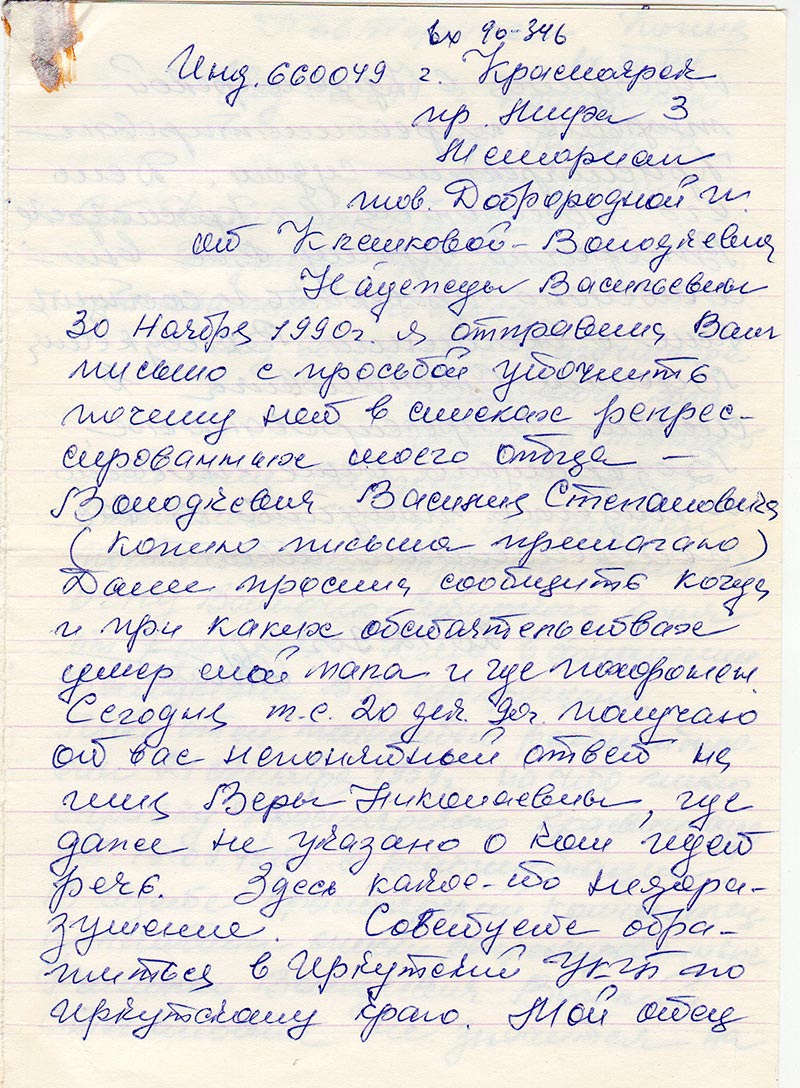 вх 90-346
Инд. 660049 г. Красноярск
пр. Мира 3
Мемориал
тов. Доброродной И.
от Клешковой-Володкевич
Надежды Васильевны
30 Ноября 1990г. я отправила Вам
письмо с просьбой уточнить
почему нет в списках репрес-
сированных моего отца —
Володкевич Василия Степановича
(копию письма прилагаю)
Далее просила сообщить когда
и при каких обстоятельствах
умер мой папа и где похоронен.
Сегодня т.е. 20 дек. 90г. получаю
от вас непонятный ответ на
имя Веры Николаевны, где
даже не указано о ком идет
речь. Здесь какое-то недора-
зумение. Советуете обра-
титься в Иркутский УКГБ по
Иркутскому краю. Мой отец